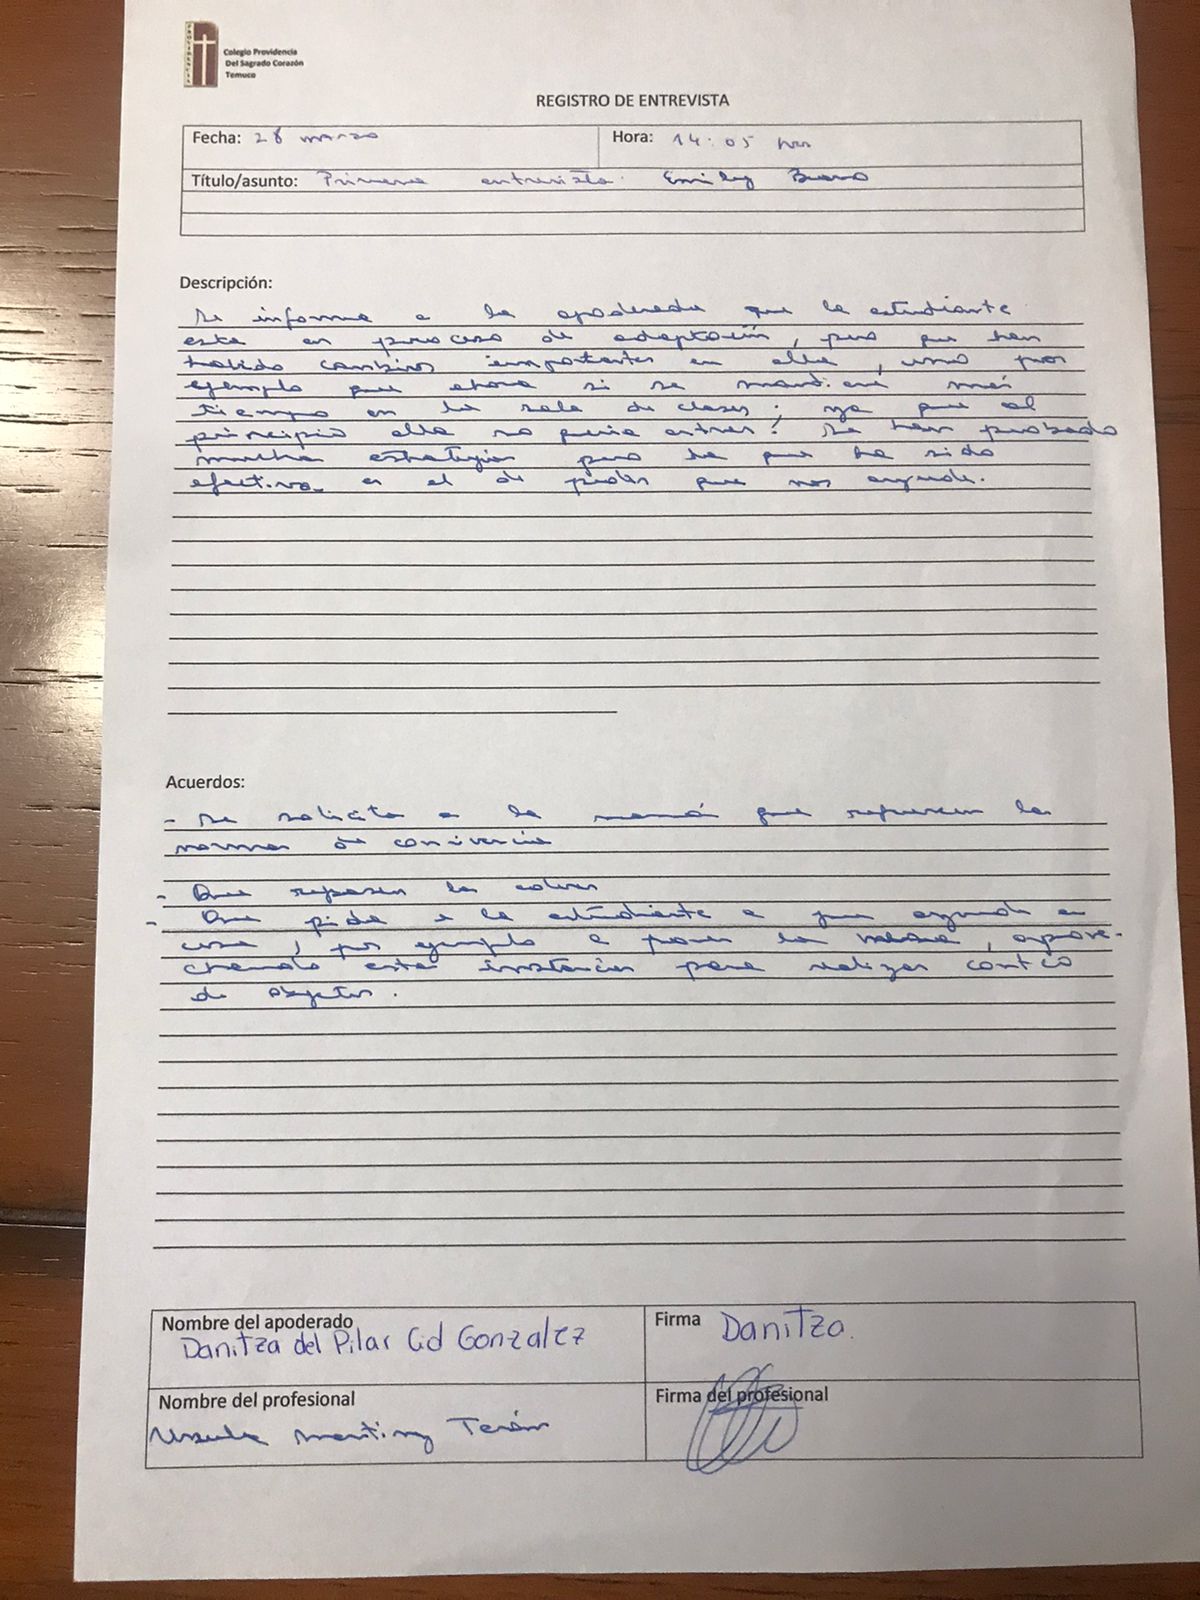 PROVIDENCIA
Colegio Providencia
Del Sagrado Corazón
Temuco
REGISTRO DE ENTREVISTA
Fecha: 28 marzo
Hora: 14:05 hrs
Título/asunto: Primera entrevista. Emily
Descripción:
Se informa a la apoderada que la estudiante
esta en proceso de adaptación, pero que han
habido cambios importantes en ella, uno por
ejemplo que ahora si se mantiene más
tiempo en la sala de clases; ya que al
principio ella no quería entrar. Se han probado
mucha estrategias pero la que ha sido
efectiva es el de pedir que nos ayude.
Acuerdos:
- Se solicita a la mamá que refuercen las
normas de convivencia
- Que repasen los colores
- Que pida a la estudiante a que ayude en
casa, por ejemplo a poner la , aprove-
chando esta instancias para realizar conteo
de objetos.
Nombre del apoderado
Danitza del Pilar Cid Gonzalez
Firma Danitza.
Nombre del profesional
Ursula Martinez Terán
Firma del profesional